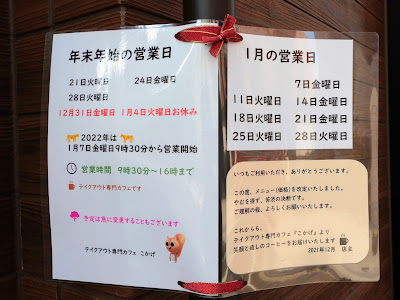 年末年始の営業日
21日火曜日 24日金曜日
28日火曜日
12月31日金曜日 1月4日火曜日お休み
2022年は
1月7日金曜日9時30分から営業開始
営業時間 9時30分～16時まで
テイクアウト専門カフェです
予定は急に変更することもございます
テイクアウト専門カフェ こかげ
1月の営業日
7日金曜日
11日火曜日 14日金曜日
18日火曜日 21日金曜日
25日火曜日 28日火曜日
いつもご利用いただき、ありがとうございます。
この度、メニュー(価格)を改定いたしました。
やむを得ず、苦渋の決断です。
ご理解の程、よろしくお願いいたします。
これからも、
テイクアウト専門カフェ『こかげ』より
笑顔と癒しのコーヒーをお届けいたします
2021年12月 店主